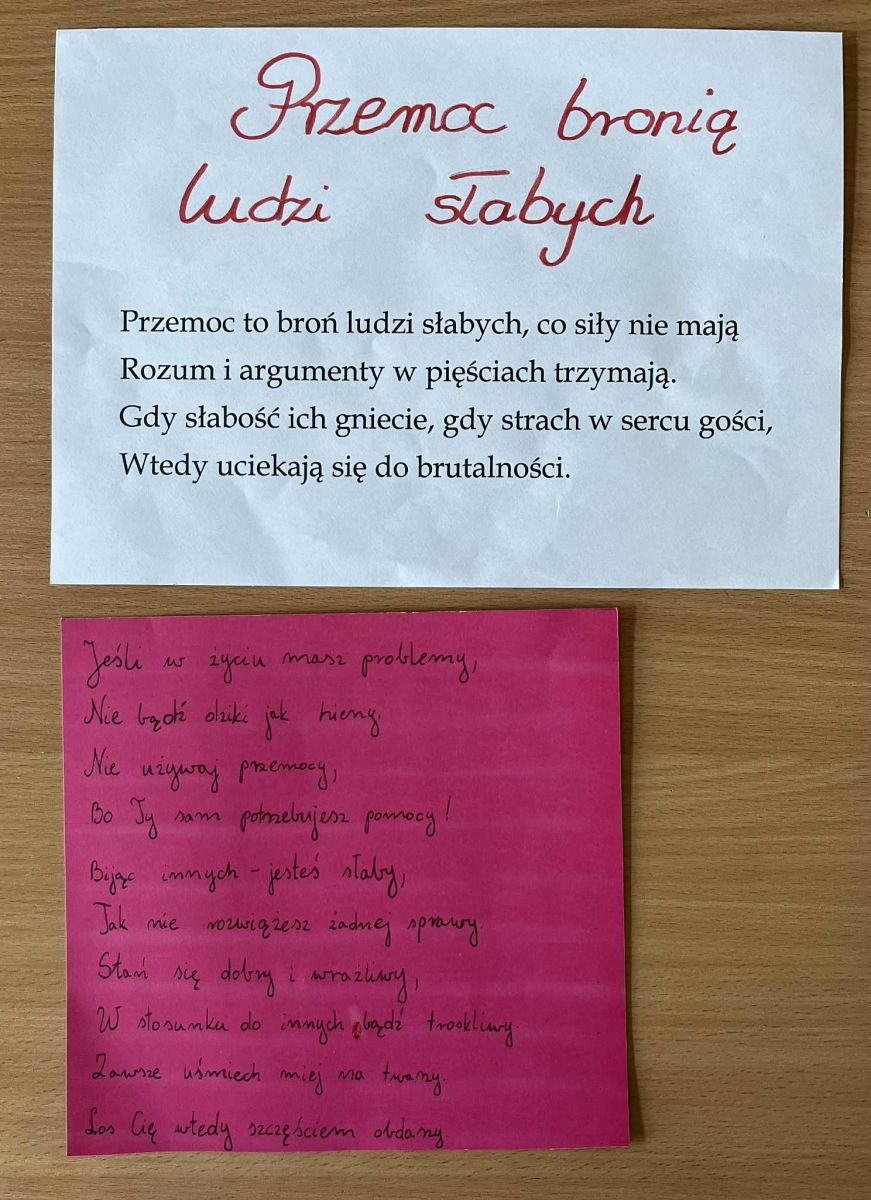 Przemoc bronią
ludzi słabych
Przemoc to broń ludzi słabych, co siły nie mają
Rozum i argumenty w pięściach trzymają.
Gdy słabość ich gniecie, gdy strach w sercu gości,
Wtedy uciekają się do brutalności.
Jeśli w życiu masz problemy,
Nie bądź dziki jak hieny.
Nie używaj przemocy,
Bo Ty sam potrzebujesz pomocy!
Bijąc innych - jesteś słaby,
Tak nie rozwiążesz żadnej sprawy.
Stań się dobry i wrażliwy,
W stosunku do innych bądź troskliwy.
Zawsze uśmiech miej na twarzy.
Los Cię wtedy szczęściem obdarzy.